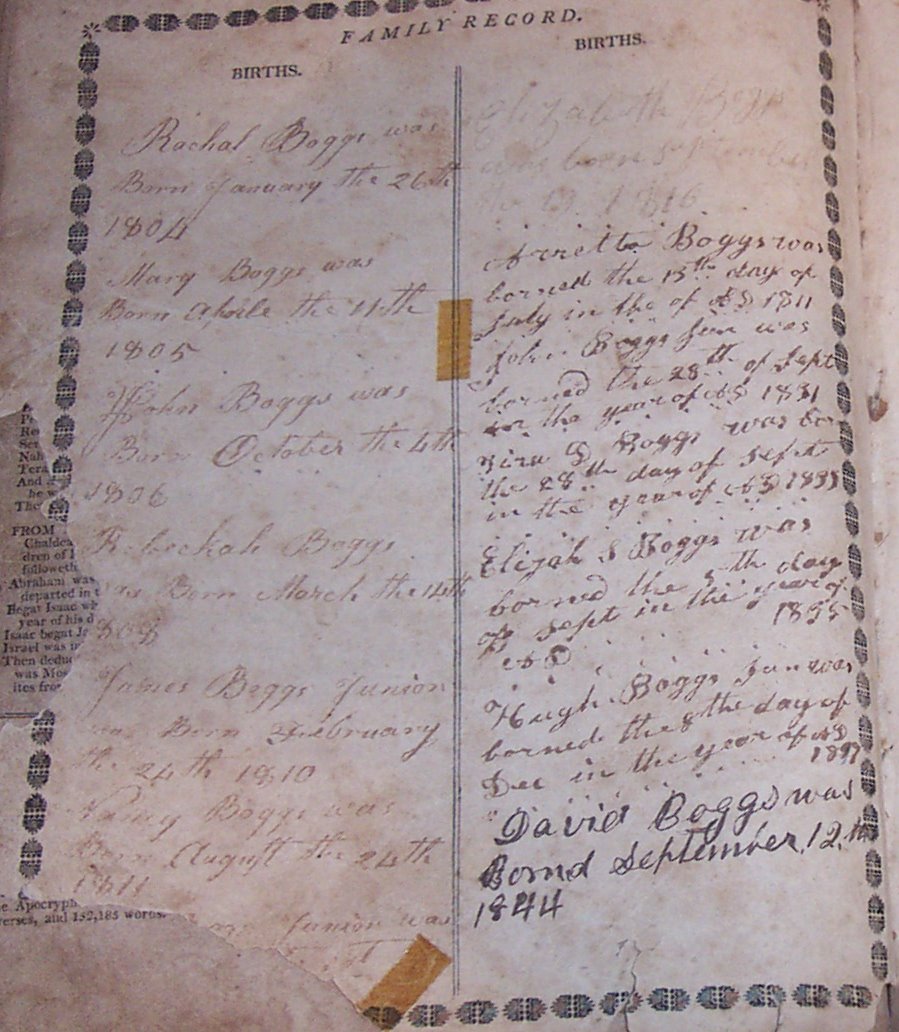 FAMILY RECORD.
BIRTHS.
Rachal Boggs was
Born January the 26th
1804
Mary Boggs was
Born Aprile the 11th
1805
John Boggs was
Born October the 4th
1806
Rebeckah Boggs
was Born March the 14th
808
James Boggs Junior
was Born February
the 24th 1810
Nancy Boggs was
Born August the 24th
1811
Junior was
BIRTHS.
Elizabeth Boggs
was born September
1816
Boggs was
borned the 15th day of
July in the of AD 1811
John Boggs Jun was
borned the 28th of Sept
in the year of AD 1831
D Boggs was bor
the 28th day of Sept
in the year of AD 183
Elijah S Boggs was
borned the th day
of Sept in the year of
AD 1835
Hugh Boggs Jun was
borned the 8th day of
Dec in the year of AD
183
David Boggs was
Bornd September, 12, th
1844
FROM
Chaldea
dren of
followeth
Abraham was
departed in t
Begat Isaac wh
year of his d
Isaac begat Ja
Israel was in
Then deduc
was Mos
ites fro
e Apocryph
verses, and 152,185 words.